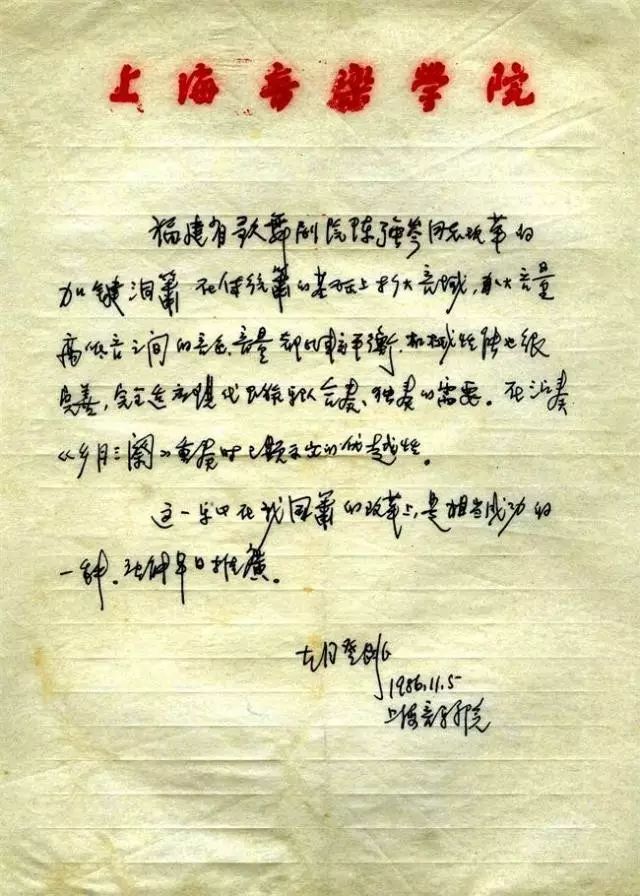 上海音乐学院
福建省歌舞剧院陈强岑同志改革的
加键洞箫在传统箫的基础上扩大音域,扩大音量
高低音之间的音色、音量都比较平衡,机械性能也很
完善,完全适应现代民族乐队合奏、独奏的需要。在演奏
《乡月三阕》重奏时已显示出的优越性。
这一乐器在我国箫的改革上,是相当成功的
一种,能早日推广。
胡登跳
1986.11.5
上海音乐学院